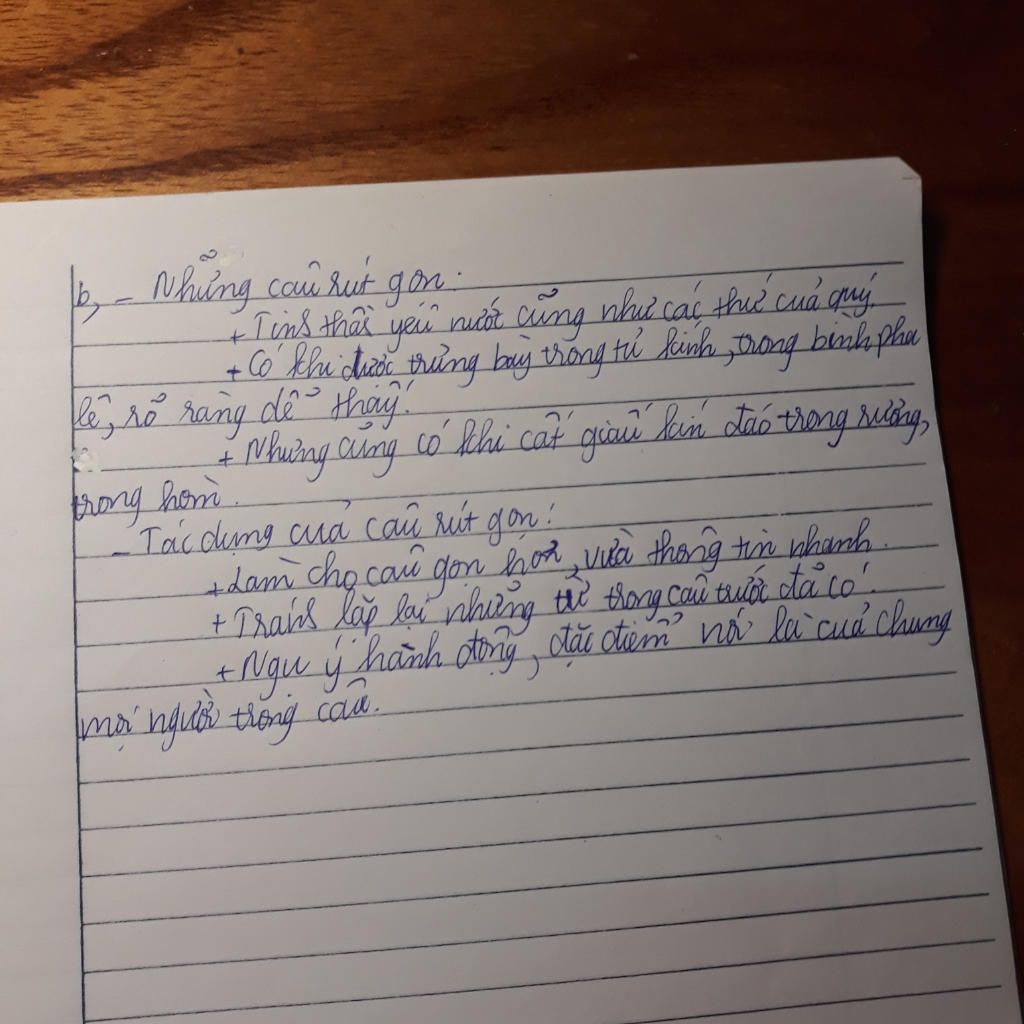 b, - Những câu rút gọn:
+ Tinh thần yêu nước cũng như các thứ của quý.
+ Có khi được trưng bày trong tủ kính, trong bình pha
lê, rõ ràng dễ thấy.
+ Nhưng cũng có khi cất giấu kín đáo trong rương,
trong hòm.
- Tác dụng của câu rút gọn:
+ Làm cho câu gọn hơn, vừa thông tin nhanh.
+ Tránh lặp lại những từ trong câu trước đã có.
+ Ngụ ý hành động, đặc điểm nói là của chung
mọi người trong câu.